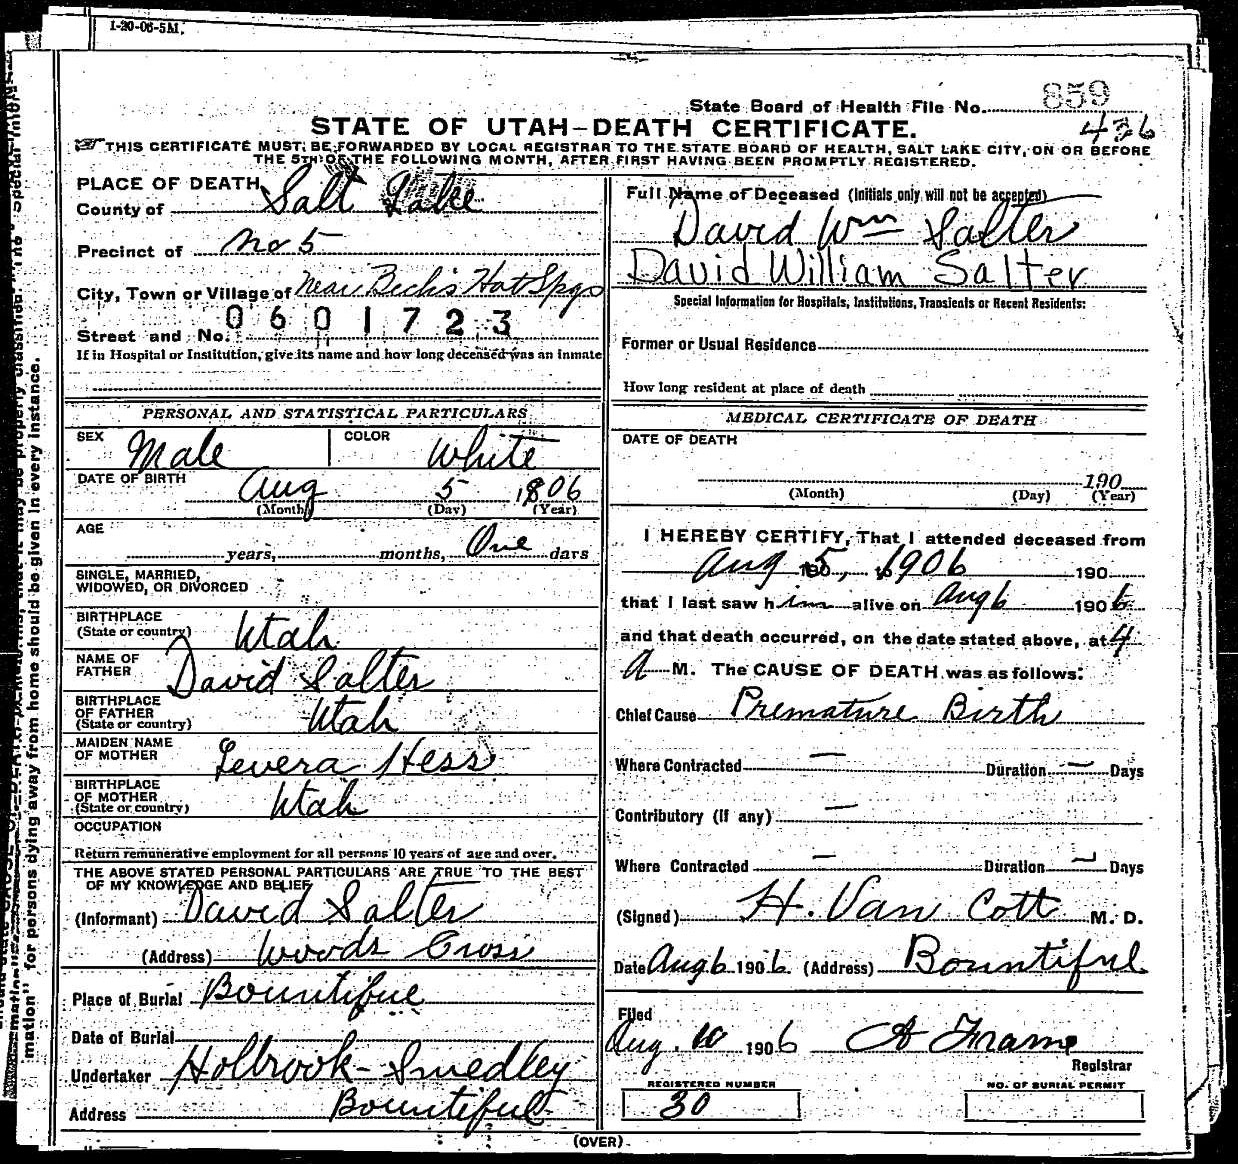 1-20-06-5M.
State Board of Health File No. 859
436
STATE OF UTAH—DEATH CERTIFICATE.
THIS CERTIFICATE MUST BE FORWARDED BY LOCAL REGISTRAR TO THE STATE BOARD OF HEALTH, SALT LAKE CITY, ON OR BEFORE
THE 5TH OF THE FOLLOWING MONTH, AFTER FIRST HAVING BEEN PROMPTLY REGISTERED.
PLACE OF DEATH
County of Salt Lake
Precinct of No 5
City, Town or Village of Near Becks Hot Spgs
0601723
Street and No.
If in Hospital or Institution, give its name and how long deceased was an inmate
PERSONAL AND STATISTICAL PARTICULARS
SEX Male COLOR White
DATE OF BIRTH Aug 5 1906
(Month) (Day) (Year)
AGE
years, months, One days
SINGLE, MARRIED,
WIDOWED, OR DIVORCED
BIRTHPLACE
(State or country) Utah
NAME OF
FATHER David Salter
BIRTHPLACE
OF FATHER
(State or country) Utah
MAIDEN NAME
OF MOTHER Levera Hess
BIRTHPLACE
OF MOTHER
(State or country) Utah
OCCUPATION
Return remunerative employment for all persons 10 years of age and over.
THE ABOVE STATED PERSONAL PARTICULARS ARE TRUE TO THE BEST
OF MY KNOWLEDGE AND BELIEF
(Informant) David Salter
(Address) Woods Cross
Place of Burial Bountiful
Date of Burial
Undertaker Holbrook-Smedley
Address Bountiful
Full Name of Deceased (Initials only will not be accepted)
David Wm Salter
David William Salter
Special Information for Hospitals, Institutions, Transients or Recent Residents:
Former or Usual Residence
How long resident at place of death
MEDICAL CERTIFICATE OF DEATH
DATE OF DEATH
190
(Month) (Day) (Year)
I HEREBY CERTIFY, That I attended deceased from
Aug 5, 190 1906 190
that I last saw him alive on Aug 6 1906
and that death occurred, on the date stated above, at 4
A M. The CAUSE OF DEATH was as follows:
Chief Cause Premature Birth
Where Contracted — Duration — Days
Contributory (If any) —
Where Contracted — Duration — Days
(Signed) H. Van Cott M. D.
Date Aug 6 1906 (Address) Bountiful
Filed
Aug. 10 1906 A Frame
Registrar
REGISTERED NUMBER
30
NO. OF BURIAL PERMIT
(OVER)
mation" for persons dying away from home should be given in every instance.